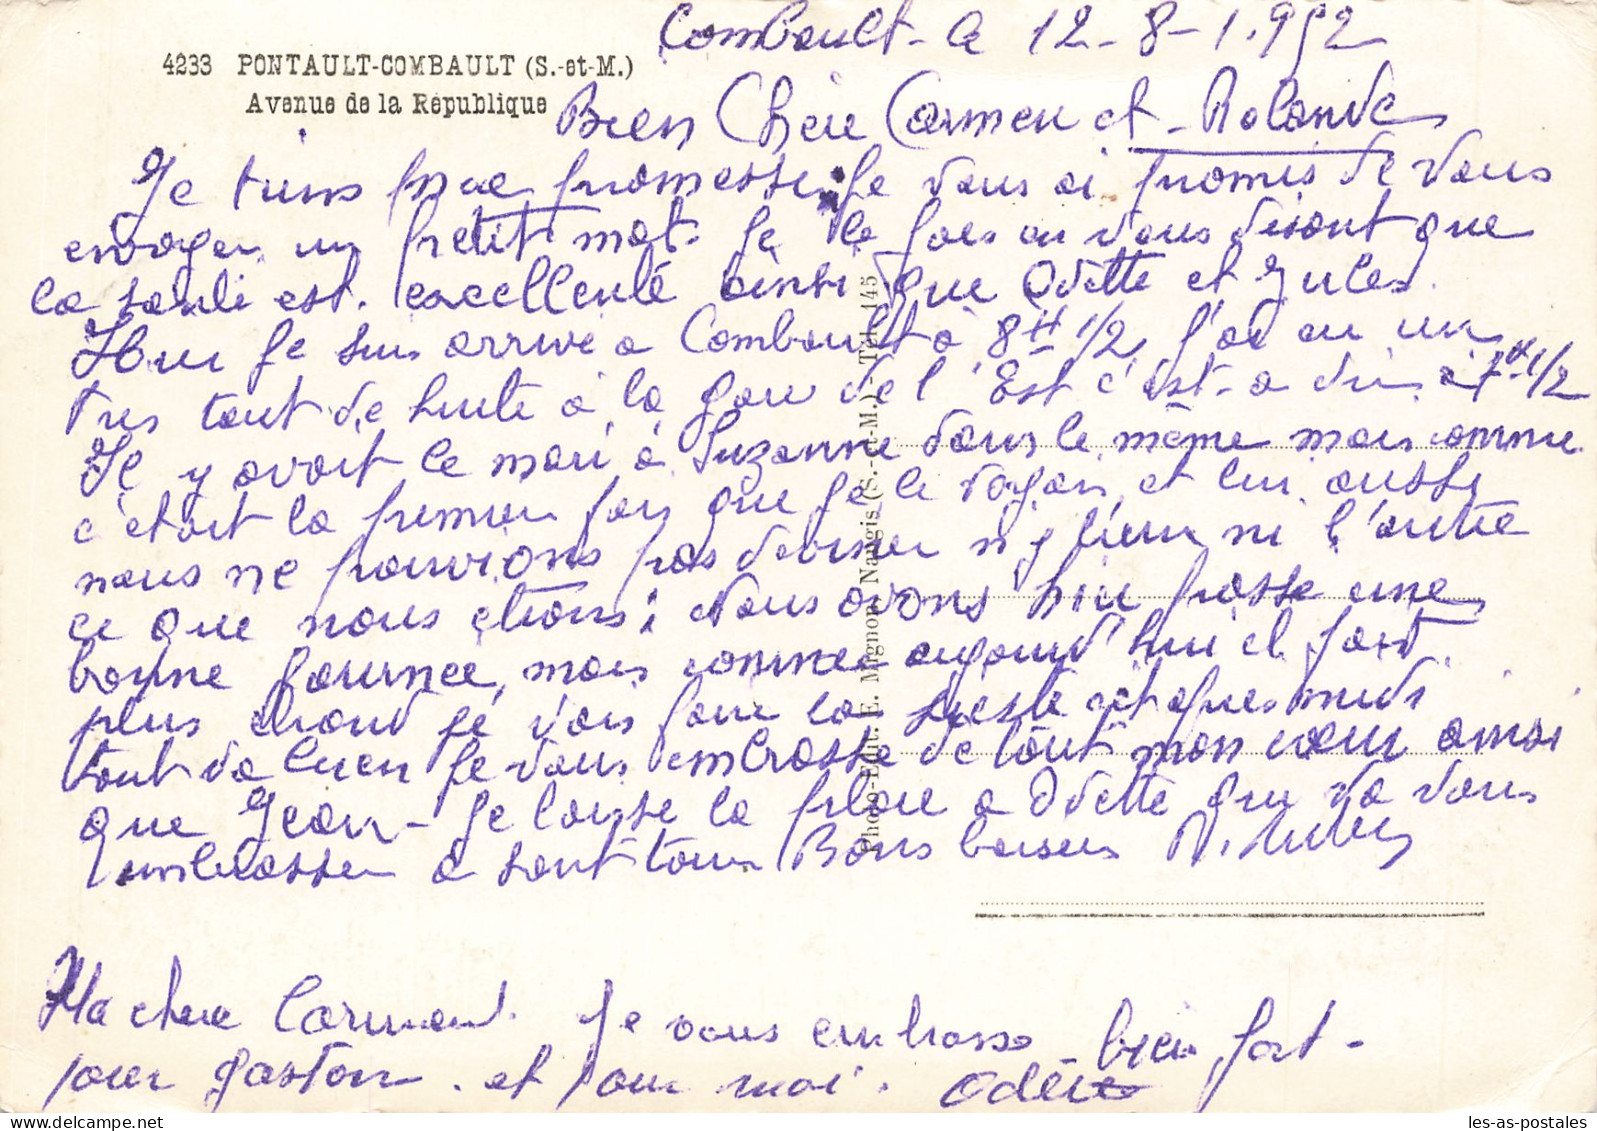 Combault - le 12 - 8 - 1.952
4233 PONTAULT-COMBAULT (S.-et-M.)
Avenue de la République
Bien Chère Carmen et Rolande
Je tiens ma promesse je vous ai promis de vous
envoyer un petit mot. Je le fais en vous disant que
la santé est excellente ainsi que Odette et Jules.
Hier je suis arrivé a Combault à 8H 1/2, j'ai eu un
tres tout de suite à la gare de l'Est c'est-a dire à 7H 1/2
Il y avait le mari à Suzanne dans le même mais comme
c'était la premier fois que je le voyais et lui aussi
nous ne pouvions pas deviner ni l'un ni l'autre
ce que nous étions; Nous avons bien passé une
bonne journée, mais comme aujourd'hui il fait
plus chaud je vais faire la sieste cet apres midi
tout va bien je vous embrasse de tout mon cœur ainsi
que Jean - Je laisse la place a Odette qui va vous
embrasser a tous Bons baisers
Photo-Edit. E. Mignon, Nangis (S.-et-M.) - Tél. 145
Ma chere Carmen. Je vous embrasse bien fort -
pour gaston. et pour moi. Odette